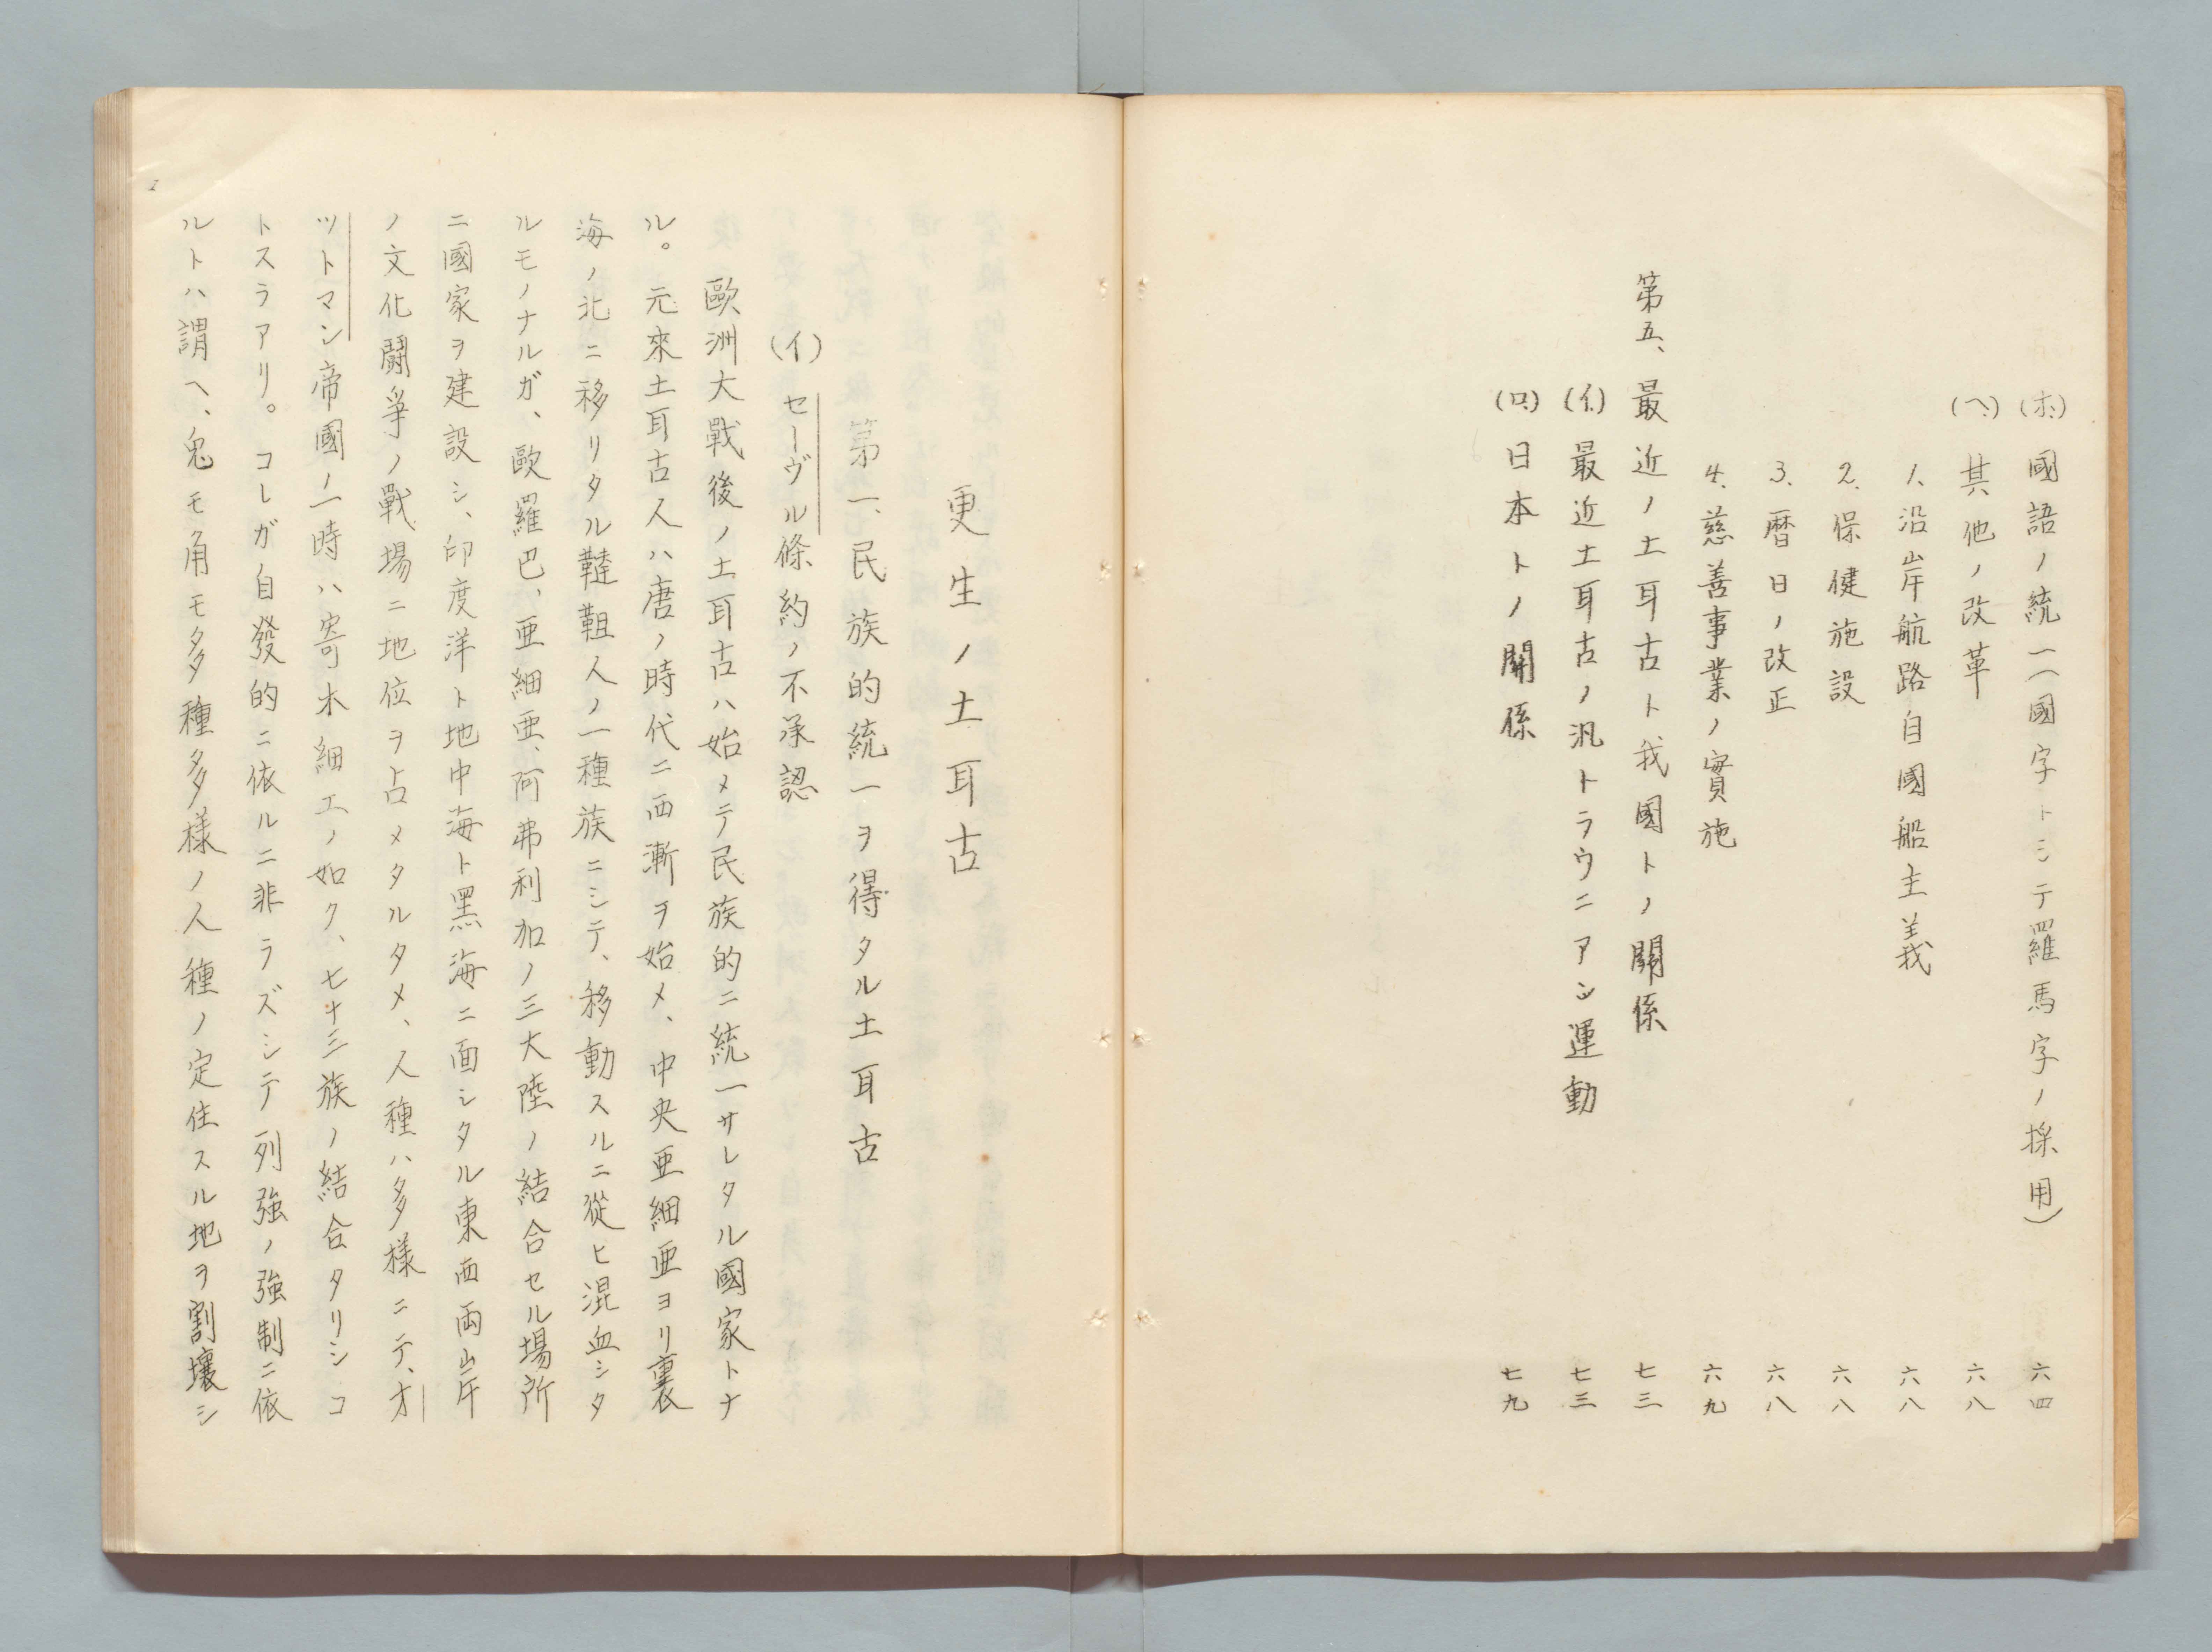 (ホ)國語ノ統一(國字トシテ羅馬字ノ採用) 六四
(ヘ)其他ノ改革 六八
1、沿岸航路自國船主義 六八
2、保健施設 六八
3、暦日ノ改正 六八
4、慈善事業ノ實施 六九
第五、最近ノ土耳古ト我國トノ關係 七三
(イ)最近土耳古ノ汎トラウニアン運動 七三
(ロ)日本トノ關係 七九
更生ノ土耳古
第一、民族的統一ヲ得タル土耳古
(イ)セーヴル條約ノ不承認
歐洲大戰後ノ土耳古ハ始メテ民族的ニ統一サレタル國家トナ
ル。元來土耳古人ハ唐ノ時代ニ西漸ヲ始メ、中央亜細亜ヨリ裏
海ノ北ニ移リタル韃靼人ノ一種族ニシテ、移動スルニ從ヒ混血シタ
ルモノナルガ、歐羅巴、亜細亜、阿弗利加ノ三大陸ノ結合セル場所
ニ國家ヲ建設シ、印度洋ト地中海ト黑海ニ面シタル東西両岸
ノ文化鬪爭ノ戰場ニ地位ヲ占メタルタメ、人種ハ多樣ニテ、オ
ツトマン帝國ノ一時ハ寄木細工ノ如ク、七十三族ノ結合タリシコ
トスラアリ。コレガ自發的ニ依ルニ非ラズシテ列強ノ強制ニ依
ルトハ謂ヘ、兎モ角モ多種多樣ノ人種ノ定住スル地ヲ割壤シ
1